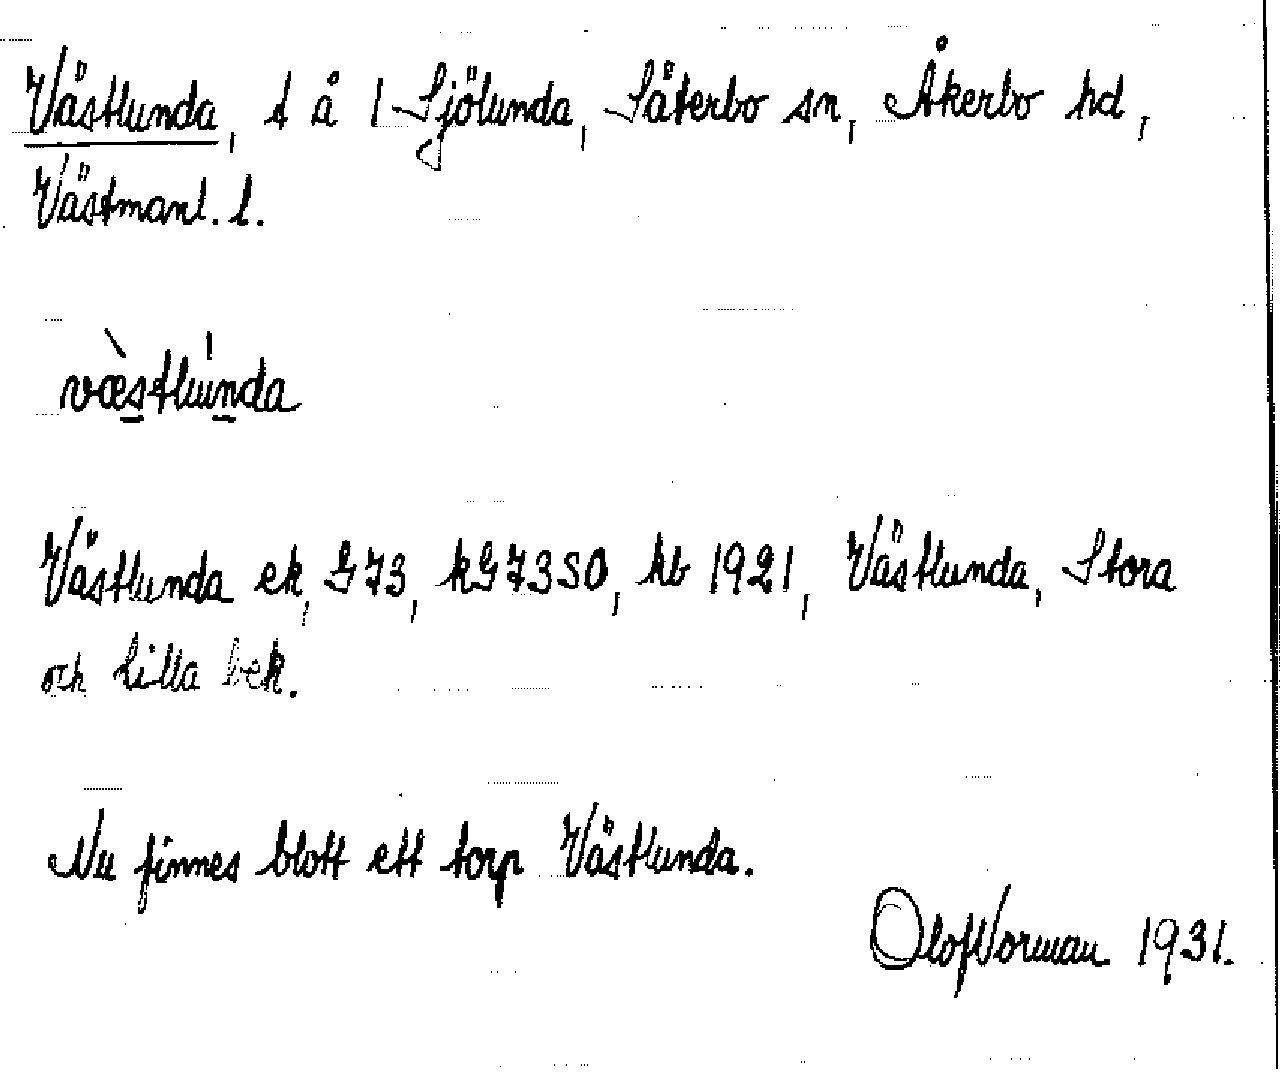 Västlunda, t å 1 Sjölunda, Säterbo sn, Åkerbo hd,
Västmanl. l.
væ̀stlúnda
Västlunda ek, G73, kG73SO, kb 1921, Västlunda, Stora
och Lilla bek.
Nu finnes blott ett torp Västlunda.
Olof Norman 1931.